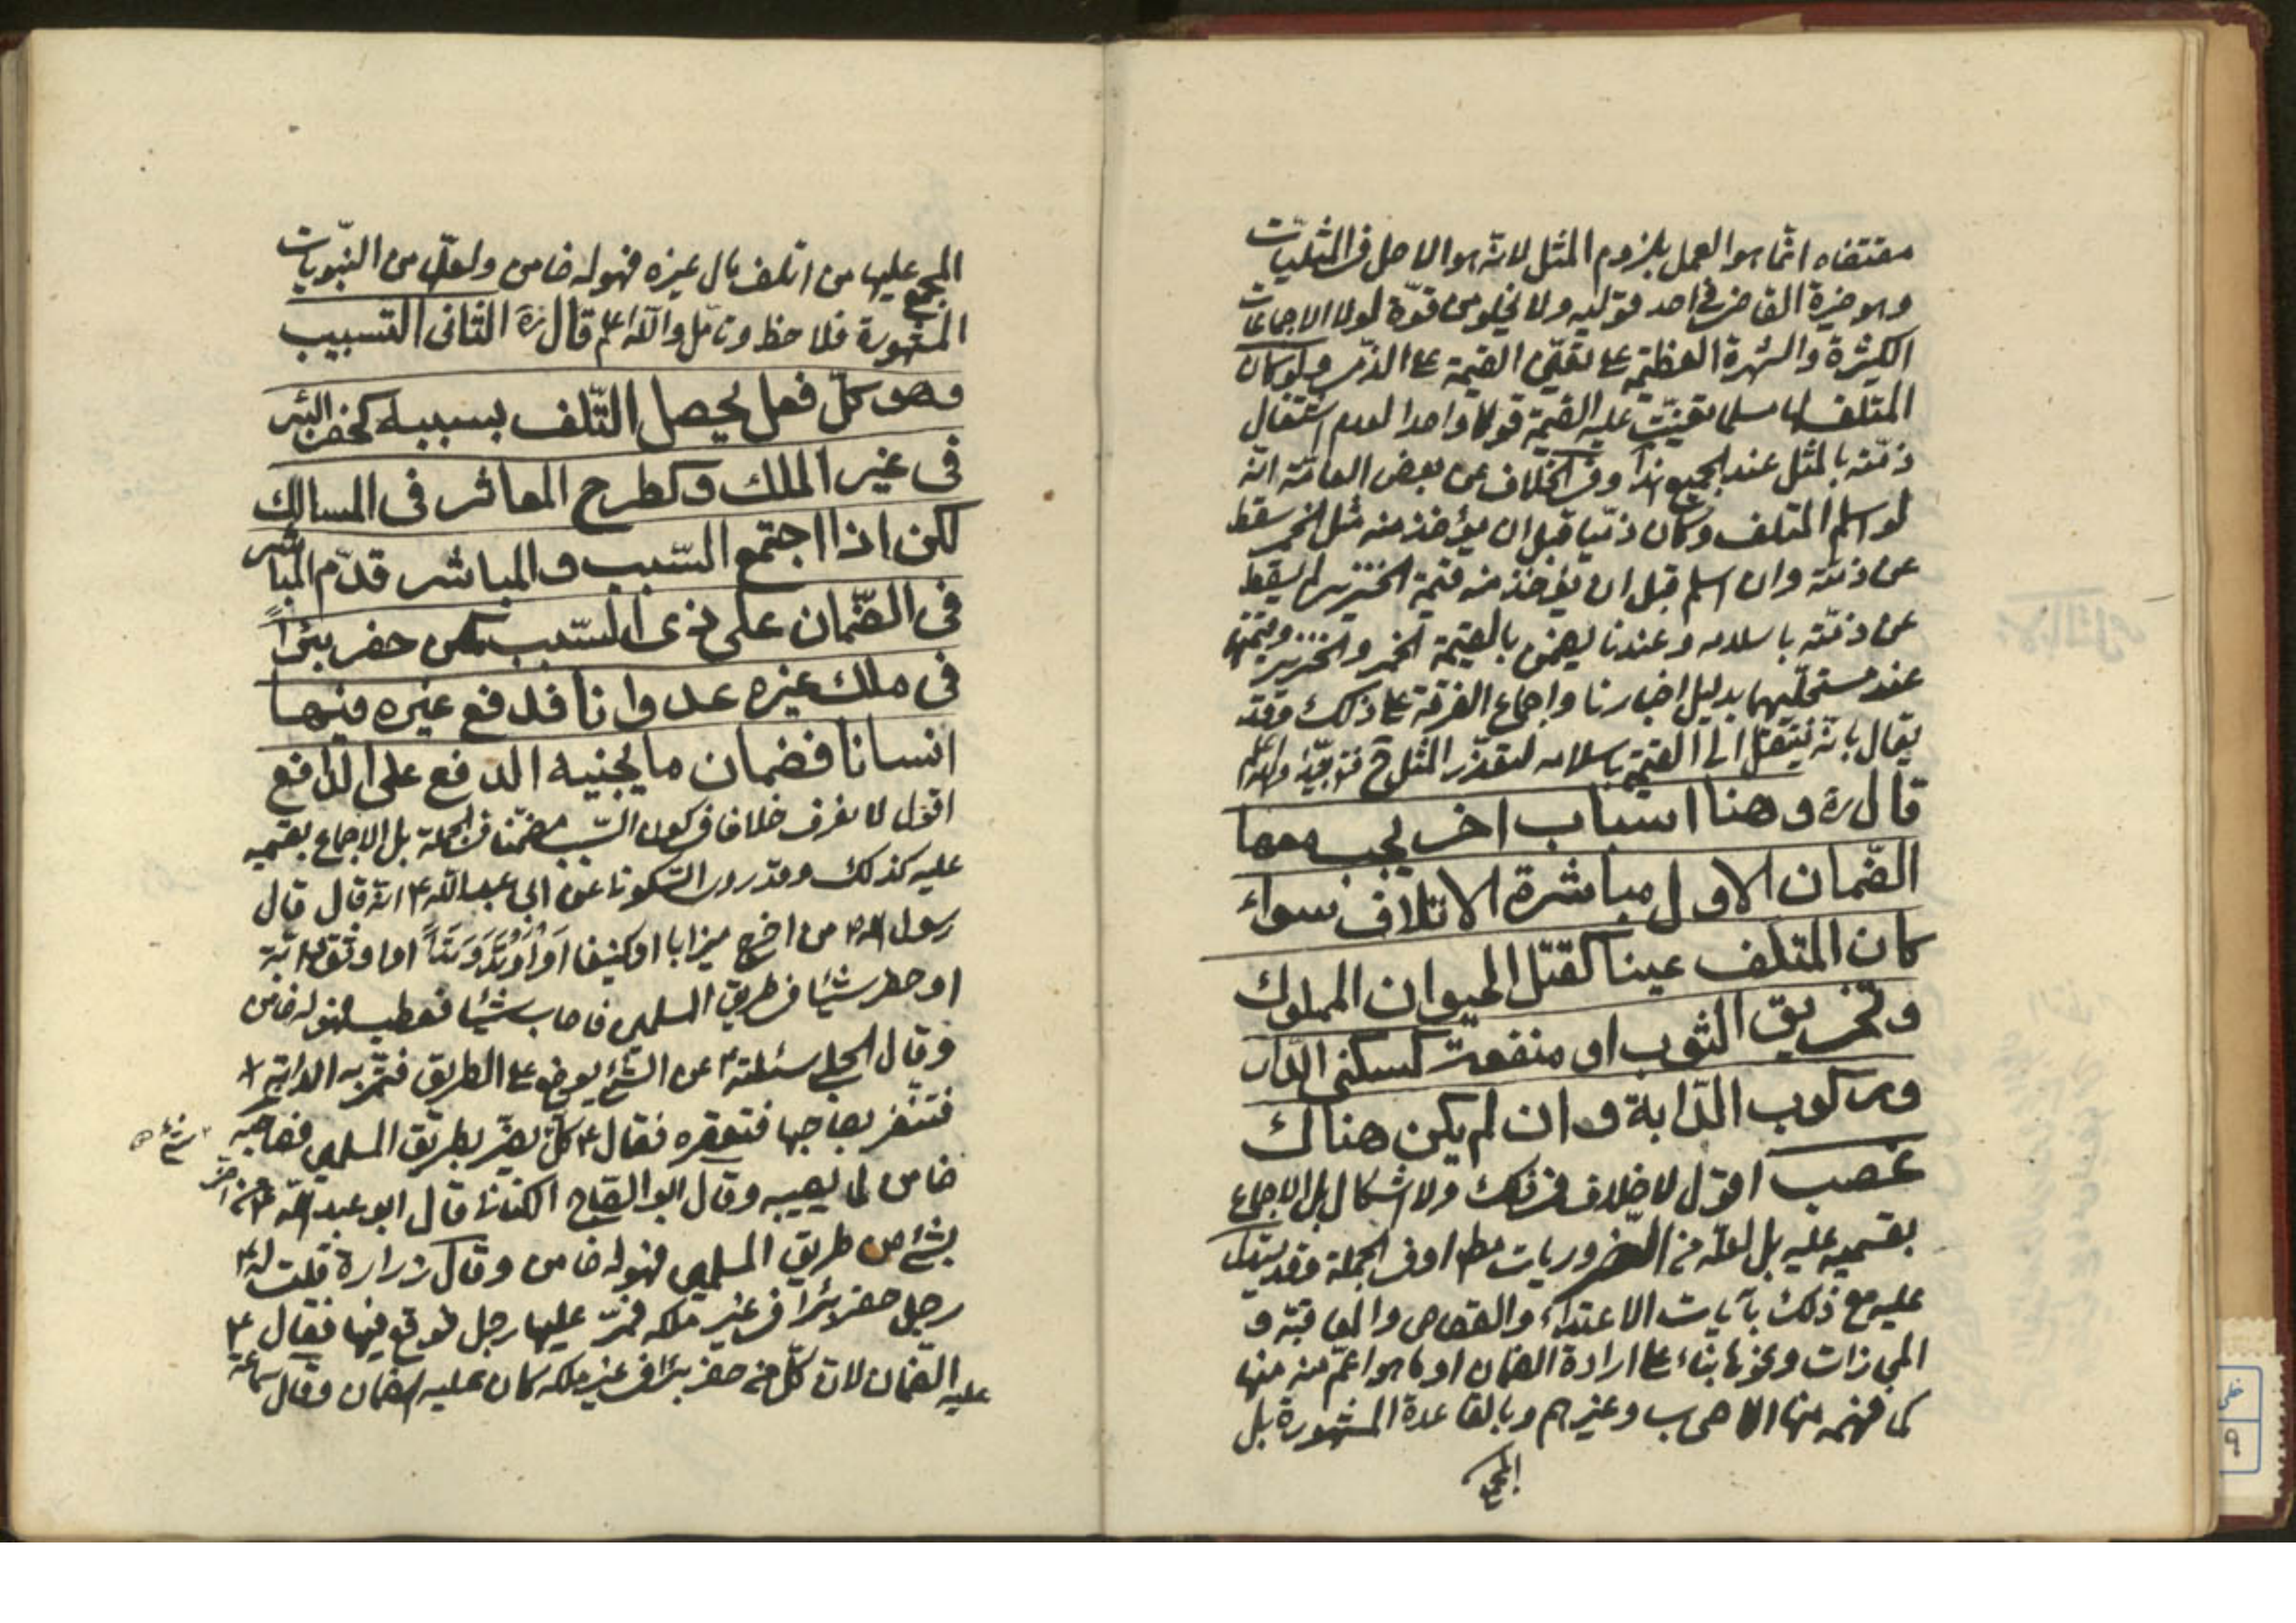 مقتضاه انّما هو العمل بلزوم المثل لانّه هو الاصل فى المثليّات
وهو خيرة القاضى فى احد قوليه ولا يخلو من قوّة لولا الاجماعات
الكثيرة والشهرة العظيمة على تعيّن القيمة على الذمى ولو كان
المتلف لها مسلما تعيّنت عليه القيمة قولا واحدا لعدم اشتغال
ذمّته بالمثل عند الجميع هذا وفى الخلاف عن بعض العامّة انّه
لو اسلم المتلف وكان ذمّيا قبل ان يؤخذ منه مثل الخمر سقط
عن ذمّته وان اسلم قبل ان يؤخذ منه قيمة الخنزير لم يسقط
عن ذمّته باسلامه وعندنا يضمن بالقيمة الخمر والخنزير وقيمتها
عند مستحلّيهما بدليل اخبارنا واجماع الفرقة على ذلك وقد
يقال بانّه ينتقل الى القيمة باسلامه لتعذّر المثل ح
قال ره وهنا اسباب اخر يجب معها
الضّمان الاول مباشرة الاتلاف سواء
كان المتلف عينا كقتل الحيوان المملوك
وتخريق الثوب او منفعة كسكنى الدّار
وركوب الدّابة وان لم يكن هناك
غصب اقول لا خلاف فى ذلك ولا اشكال بل الاجماع
بقسميه عليه بل لعلّه من الضّروريات مط او فى الجملة وقد يستدل
عليه مع ذلك بآيات الاعتداء والقصاص والمعاقبة و
المجازات ونحوها بناء على ارادة الضمان او ما هو اعمّ منه منها
كما فهمه منها الاصحاب وغيرهم وبالقاعدة المشهورة بل
المجمع
المجمع عليها من اتلف مال غيره فهو له ضامن ولعلّها من النّبويّات
المشهورة فلاحظ وتامّل والله اعلم قال ره الثّانى التسبيب
وهو كلّ فعل يحصل التّلف بسببه كحفر البئر
فى غير الملك وكطرح المعاثر فى المسالك
لكن اذا اجتمع السّبب والمباشر قدّم المباشر
فى الضّمان على ذى السّبب كمن حفر بئراً
فى ملك غيره عدوانا فدفع غيره فيها
انسانا فضمان ما يجنيه الدفع على الدّافع
اقول لا نعرف خلافا فى كون السّبب مضمّنا فى الجملة بل الاجماع بقسميه
عليه كذلك وقد روى السّكونى عن ابى عبد الله ع انّه قال قال
رسول الله ص من اخرج ميزابا او كنيفا او أوتد وتداً او اوثق دابّة
او حفر شيئا فى طريق المسلمين فاصاب شيئا فعطب فهو له ضامن
وقال الحلبى سئلته ع عن الشئ يوضع على الطريق فتمرّ به الدابّة
فتنفر بصاحبها فتعقره فقال ع كلّ شئ يضرّ بطريق المسلمين فصاحبه
ضامن لما يصيبه وقال ابو الصّباح الكنانى قال ابو عبد الله ع من اضرّ
بشئ من طريق المسلمين فهو له ضامن وقال زرارة قلت له ع
رجل حفر بئرا فى غير ملكه فمرّ عليها رجل فوقع فيها فقال ع
عليه الضّمان لانّ كلّ من حفر بئرا فى غير ملكه كان عليه الضمان وقال سماعة